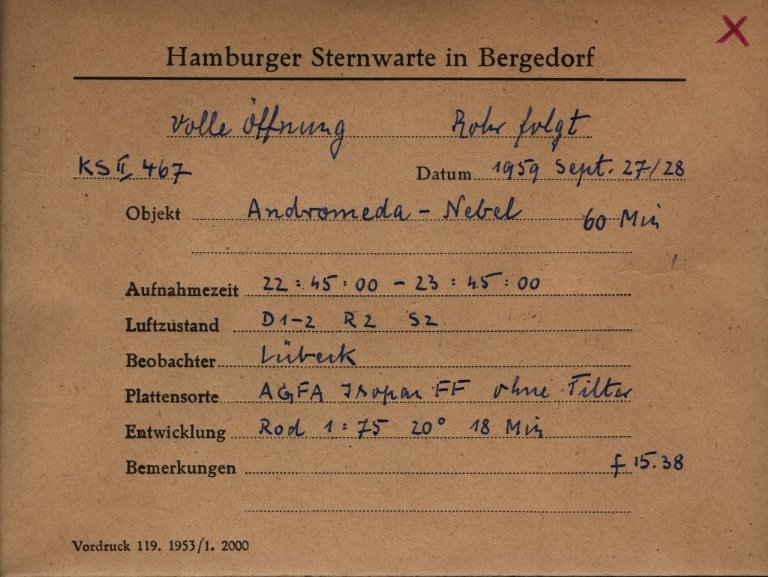 Hamburger Sternwarte in Bergedorf
Volle Öffnung Rohr folgt
KS II 467 Datum 1959 Sept. 27/28
Objekt Andromeda - Nebel 60 Min
Aufnahmezeit 22:45:00 - 23:45:00
Luftzustand D1-2 R2 S2
Beobachter Lübeck
Plattensorte AGFA Isopan FF ohne Filter
Entwicklung Rod 1:75 20° 18 Min
Bemerkungen f 15.38
Vordruck 119. 1953/1. 2000